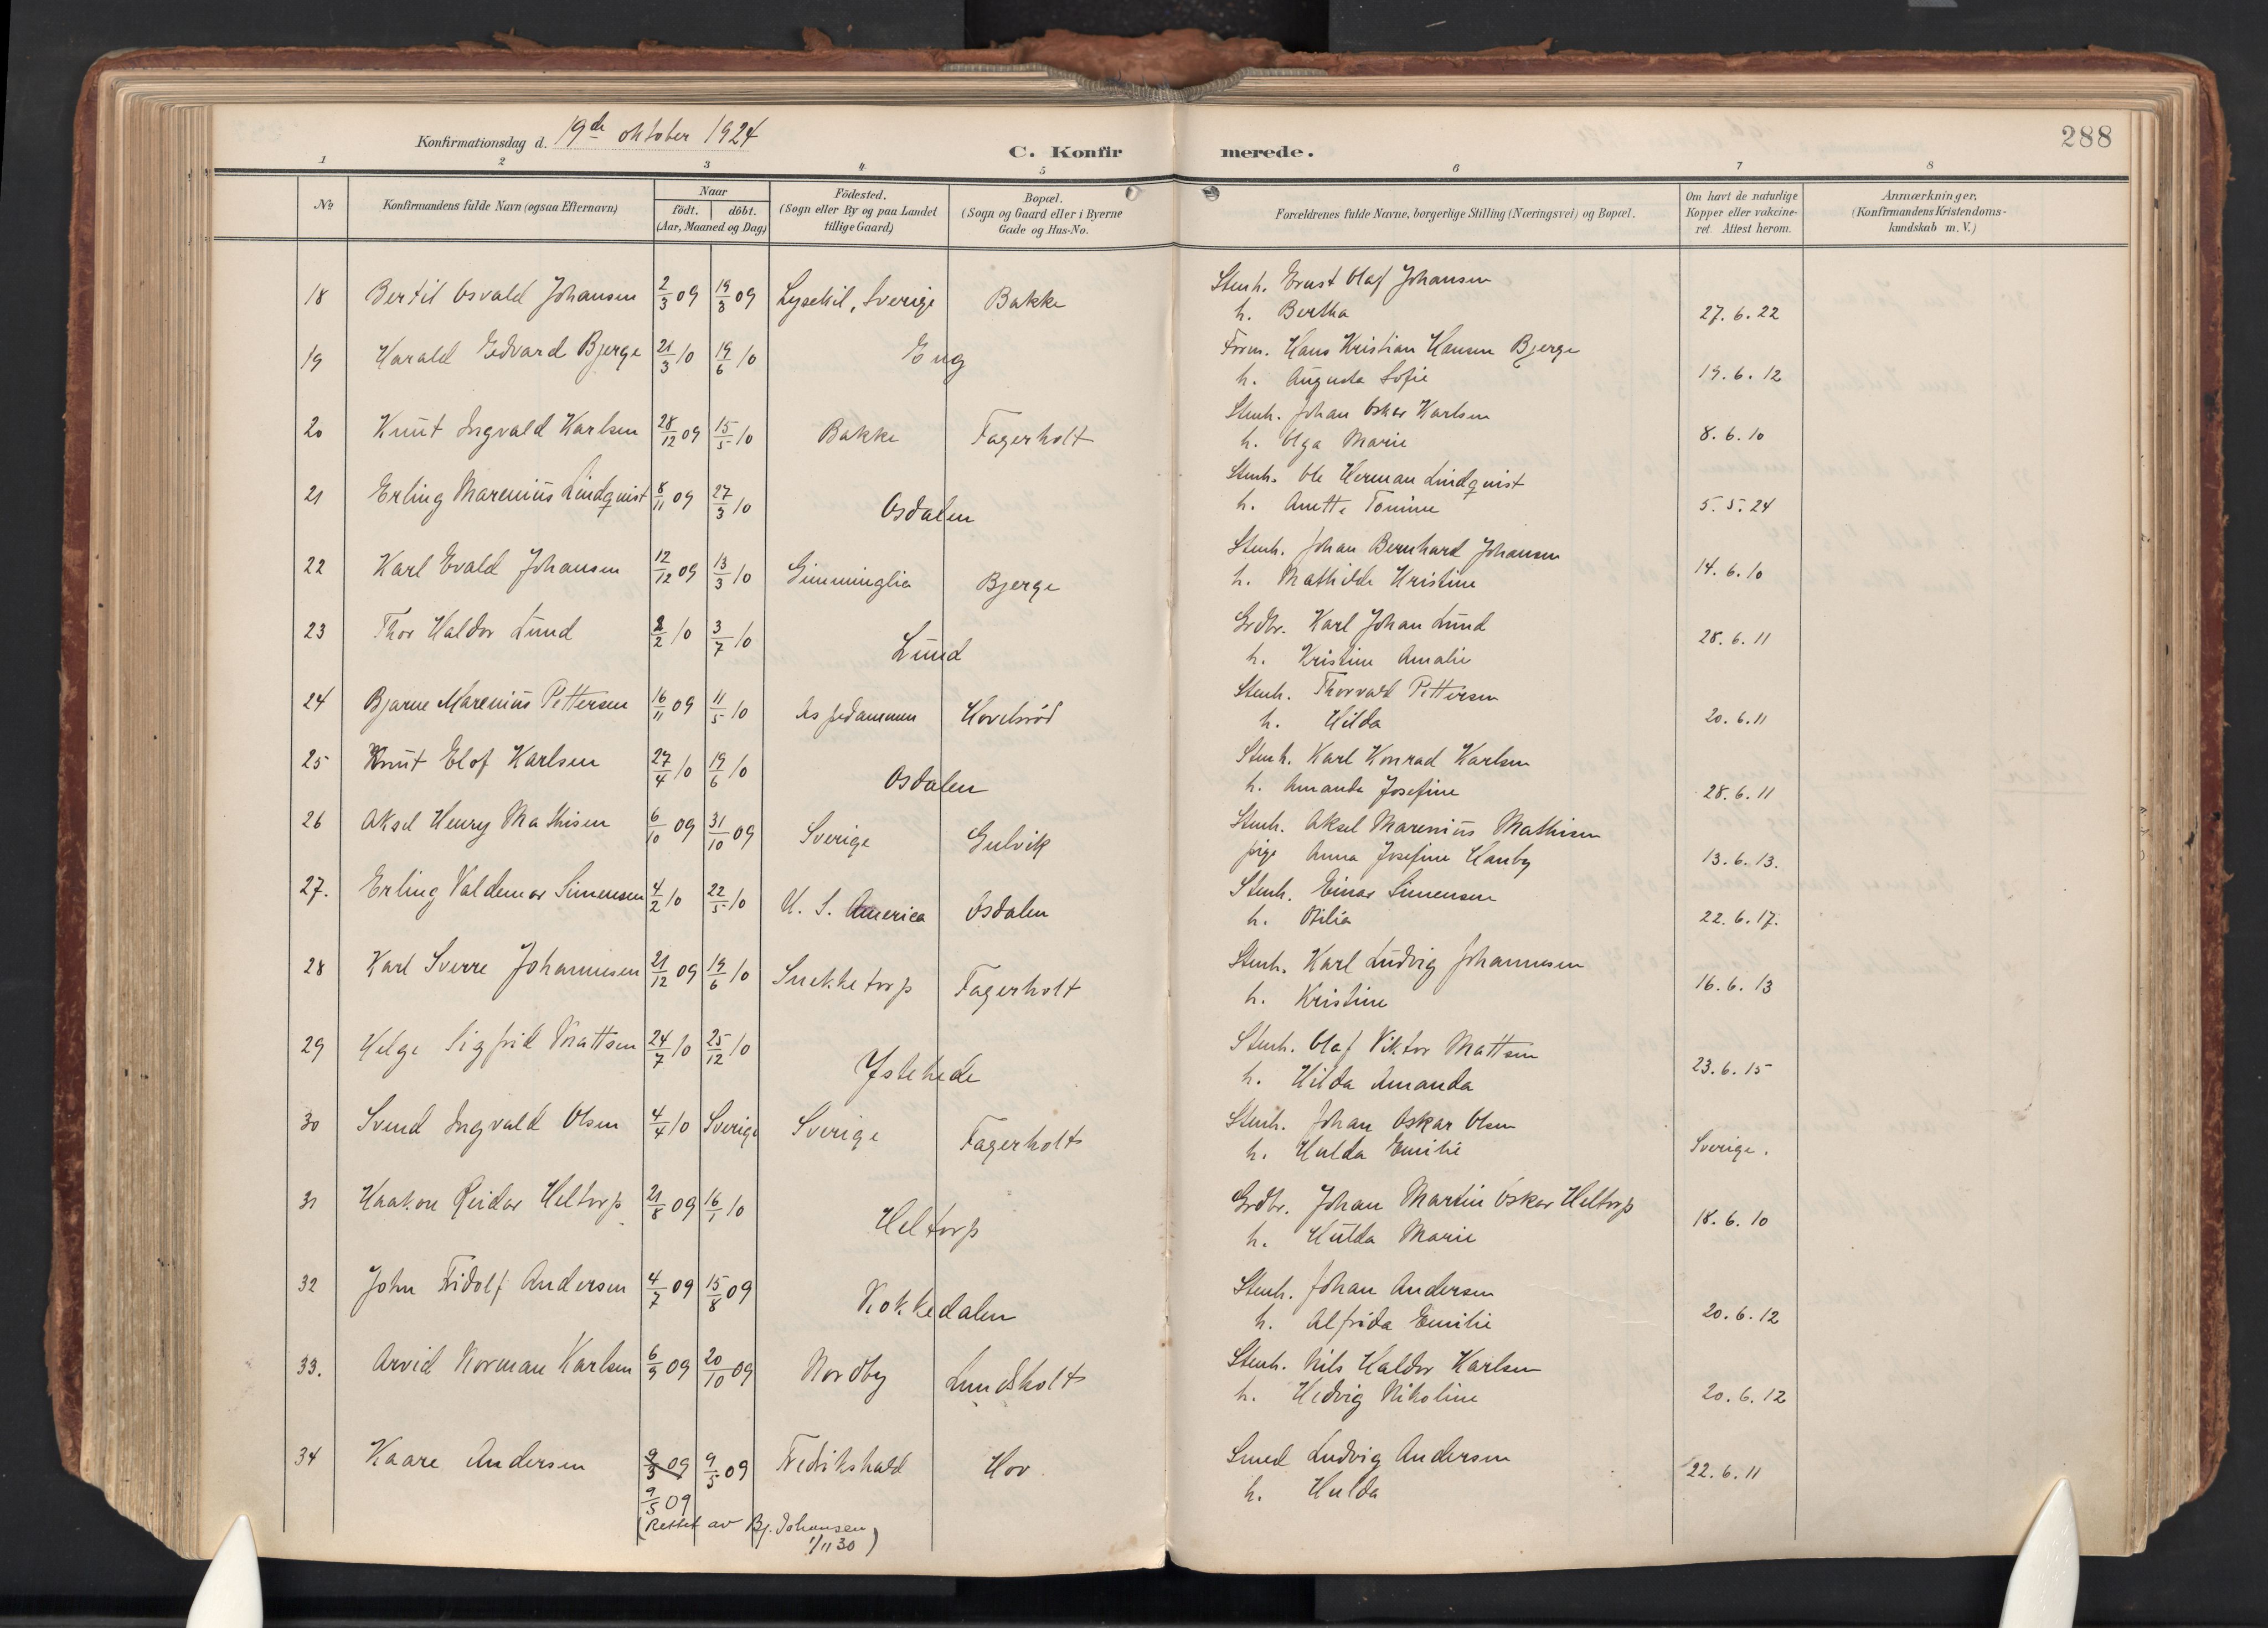 Konfirmationsdag d. 19de oktober 1924
C. Konfirmerede.
288
1 2 3 4 5 6 7 8
No
Konfirmandens fulde Navn (ogsaa Efternavn)
Naar
födt. döbt.
(Aar, Maaned og Dag)
Födested.
(Sogn eller By og paa Landet
tillige Gaard)
Bopæl.
(Sogn og Gaard eller i Byerne
Gade og Hus-No.
Forældrenes fulde Navne, borgerlige Stilling (Næringsvei) og Bopæl.
Om havt de naturlige
Kopper eller vakcine-
ret. Attest herom.
Anmærkninger.
(Konfirmandens Kristendoms-
kundskab m. V.)
18 Bertil Osvald Johansen 2/3 09 19/3 09 Lysekil, Sverige Bakke Stenh. Ernst Olaf Johansen
h. Bertha 27.6.22
19 Harald Edvard Bjerge 21/3 10 19/6 10 Eng Form. Hans Kristian Hansen Bjerge
h. Augusta Sofie 19.6.12
20 Knut Ingvald Karlsen 28/12 09 15/5 10 Bakke Fagerholt Stenh. Johan Oskar Karlsen
h. Olga Marie 8.6.10
21 Erling Marenius Lindquist 8/11 09 27/3 10 Osdalen Stenh. Ole Herman Lindquist
h. Anette Tomine 5.5.24
22 Karl Evald Johansen 12/12 09 13/3 10 Gimminglia Bjerge Stenh. Johan Bernhard Johansen
h. Mathilde Kristine 14.6.10
23 Thor Haldor Lund 2/2 10 3/7 10 Lund Grdbr. Karl Johan Lund
h. Kristine Amalie 28.6.11
24 Bjarne Marenius Pettersen 16/11 09 11/5 10 Aspedammen Hovelsröd Stenh. Thorvald Pettersen
h. Hilda 20.6.11
25 Knut Elof Karlsen 27/4 10 19/6 10 Osdalen Stenh. Karl Konrad Karlsen
h. Amanda Josefine 28.6.11
26 Aksel Henry Mathisen 6/10 09 31/10 09 Sverige Gulvik Stenh. Aksel Marenius Mathisen
pige Anna Josefine Hanby 13.6.13.
27. Erling Valdemar Simensen 4/2 10 22/5 10 U. S. America Osdalen Stenh. Einar Simensen
h. Otilia 22.6.17.
28 Karl Sverre Johannesen 21/12 09 19/6 10 Snekketorp Fagerholt Stenh. Karl Ludvig Johannesen
h. Kristine 16.6.13
29 Helge Sigfrid Mattsen 24/7 10 25/12 10 Ystehede Stenh. Olaf Viktor Mattsen
h. Hilda Amanda 23.6.15
30 Svend Ingvald Olsen 4/4 10 Sverige Sverige Fagerholt Stenh. Johan Oskar Olsen
h. Hulda Emilie Sverige.
31 Haakon Reidar Heltorp 21/8 09 16/1 10 Heltorp Grdbr. Johan Martin Oskar Heltorp
h. Hulda Marie 18.6.10
32 John Fridolf Andersen 4/7 09 15/8 09 Kokkedalen Stenh. Johan Andersen
h. Alfrida Emilie 20.6.12
33. Arvid Norman Karlsen 6/9 09 20/10 09 Nordby Lundsholt Stenh. Nils Haldor Karlsen
h. Hedvig Nikoline 20.6.12
34 Kaare Andersen 9/3 09 9/5 09 Fredrikshald Hov Smed Ludvig Andersen
h. Hulda 22.6.11
9/5 09
(Rettet av Bj. Johansen
1/11 30)